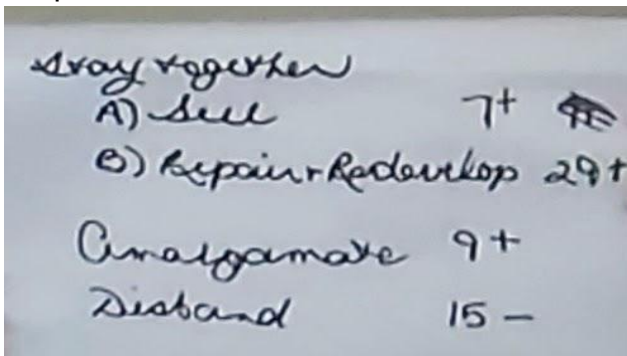 Stay together
A) Sell 7+
B) Repair + Redevelop 29+
Amalgamate 9+
Disband 15 -